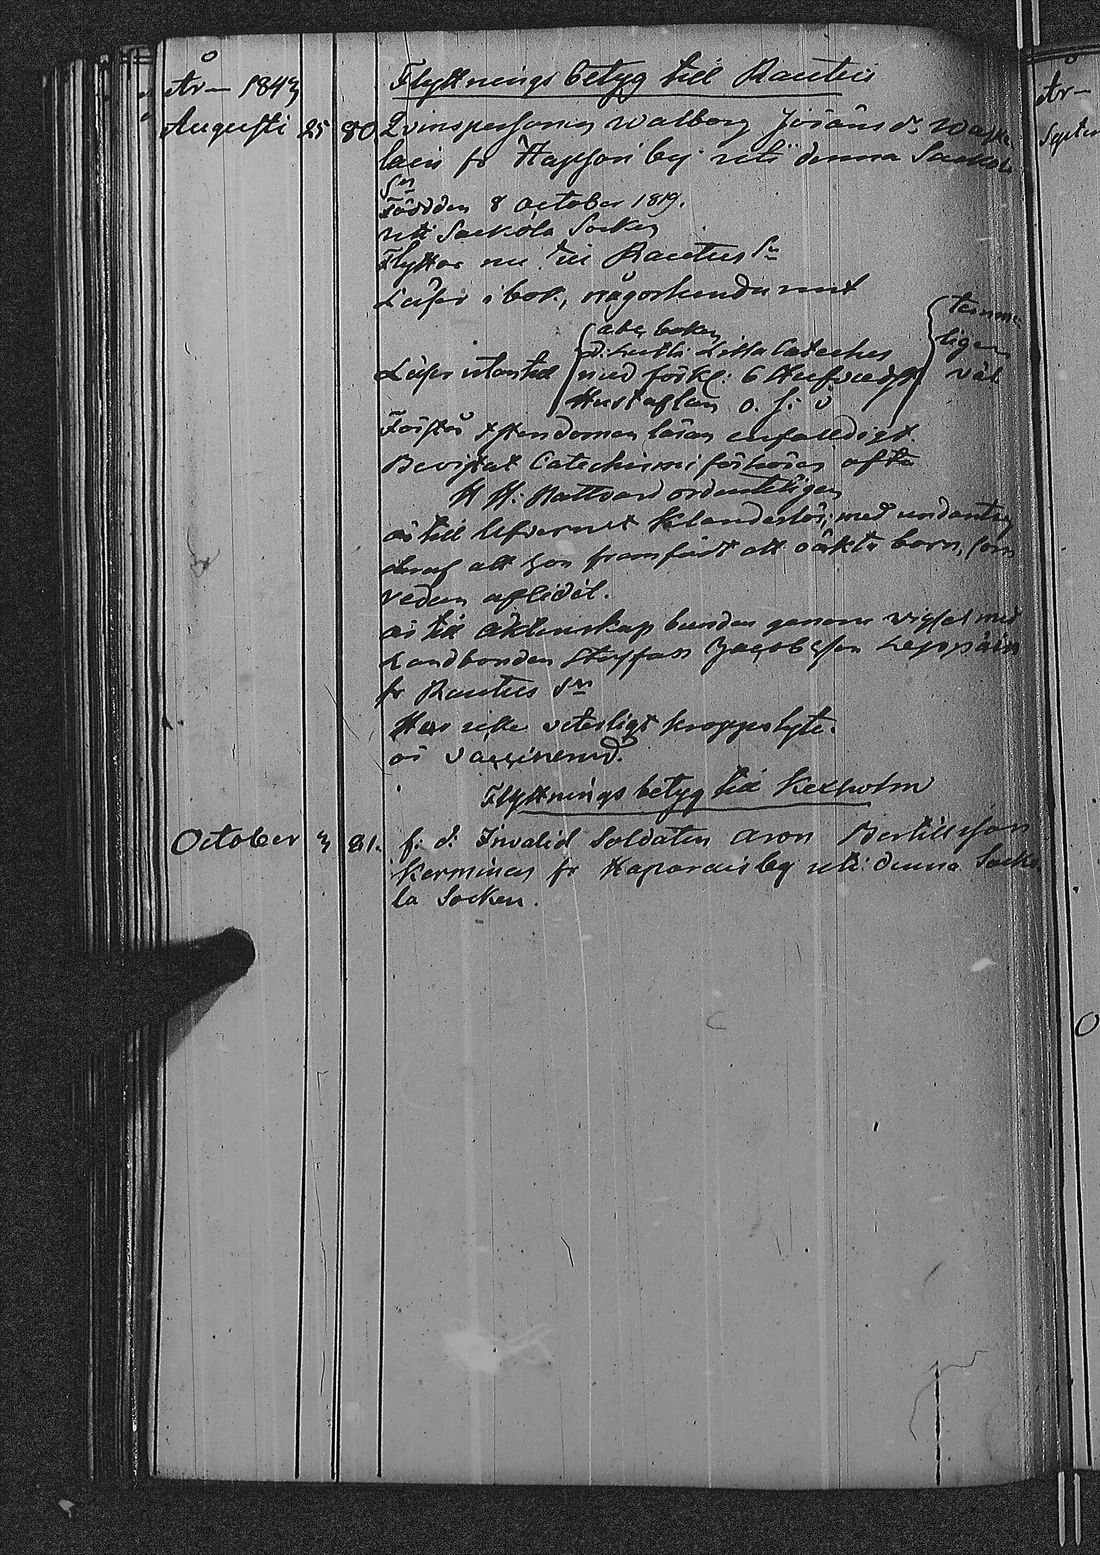 År 1843
Flyttnings betyg till Rautus
Augusti 25 80. Qvinspersonen Walborg Jöräns dr
lain fr by uti denna Sackola
Sn
Född den 8 October 1819.
uti Sackola Socken
Flyttar nu till Rautus Sn
Läser i bok, någorlunda rent
Läser utantill
abc boken
d: Luth: Lilla Cateches
med förkl: 6 Hufvudst
Hustaflan o. s: v
temme
ligen
väl
Förstår Xstendomen läran enfaldigt.
Bevistat Catechismi förhören ofta
H H: Nattvard ordentligen
är till lefvernet klanderlös, med undantag
deraf att hon framfödt ett oäkta barn, som
redan aflidit.
är till äktenskap bunden genom vigsel med
Landbonden Staffan Jacobsson Leppäin
fr Rautus Sn
Har icke veterligt kroppslyte.
är vaccinerad.
Flyttnings betyg till Kexholm
October 3 81. f: d: Invalid Soldaten Aron Bertillsson
Korminen fr by uti denna Sacko
la Socken.
År
Septem
O